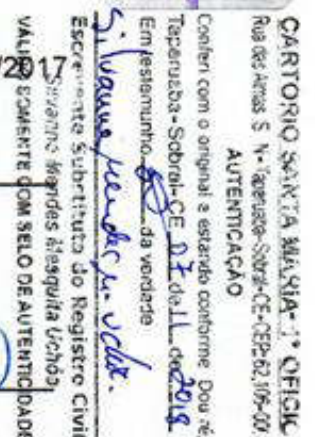 CARTORIO SANTA MARIA - 1º OFICIO
Rua das Almas S. Nº Taperuaba-Sobral-CE-CEP:62.106-00
AUTENTICAÇÃO
Conferi com o original e estando conforme Dou fé
Taperuaba - Sobral-CE 07 de 11 de 2018
Em testemunho da verdade
Silvanne Mendes
Escrevente Substituto do Registro Civi
Mendes Mesquita Uchôa
VÁLI SOMENTE COM SELO DE AUTENTICIDADE
/2017